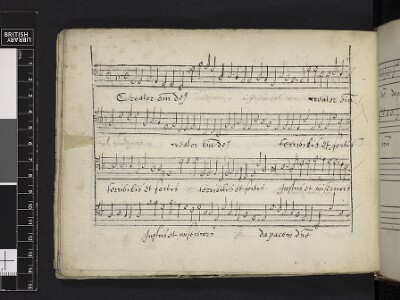 BRITISH LIBRARY
Creator oīm de9 creator oīm
creator oīm de9 terribilis et fortis
terribilis et fortis terribilis et fortis Justus et misericors
Justus et misericors da pacem dñe